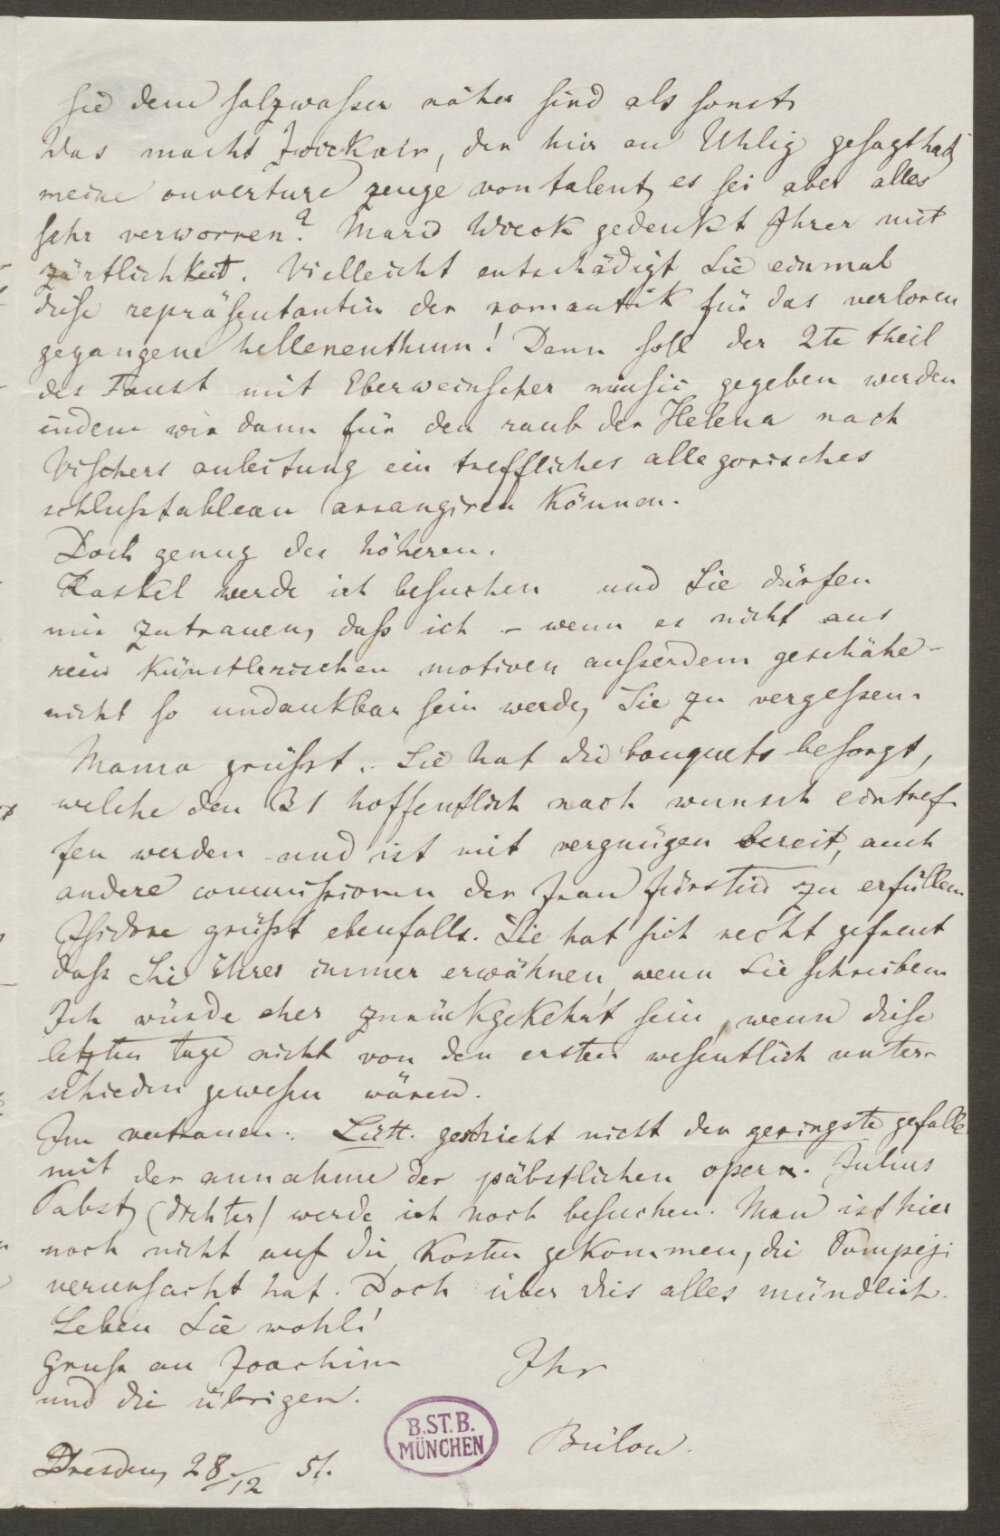 Sie dem salzwasser näher sind als sonst.
Was macht Zwickair, der hier an Uhlig gesagt hat,
meine ouverture zeuge von talent, es sei aber alles
sehr verworren? Marie Wieck gedenkt Ihrer mit
zärtlichkeit. Vielleicht entschädigt Sie einmal
diese repräsentantin der romantik für das verloren
gegangene hellenenthum! Dann soll der 2te theil
des Faust mit Eberweinscher musik gegeben werden
indem wir dann für den raub der Helena nach
Vischers anleitung ein treffliches allegorisches
schlusstableau arrangiren können.
Doch genug des höheren.
Kaskel werde ich besuchen und Sie dürfen
mir zutrauen, daß ich – wenn es nicht aus
rein künstlerischen motiven ausserdem geschähe –
nicht so undankbar sein werde, Sie zu vergessen.
Mama grüsst. Sie hat die bouquets besorgt,
welche den 31 hoffentlich nach wunsch eintref
fen werden und ist mit vergnügen bereit, auch
andere commissionen der Frau fürstin zu erfüllen.
Isidore grüsst ebenfalls. Sie hat sich recht gefreut
dass Sie ihrer immer erwähnen, wenn Sie schreiben.
Ich würde eher zurückgekehrt sein, wenn diese
letzten tage nicht von den ersten wesentlich unter-
schieden gewesen wären.
Im vertrauen: Lütt. geschieht nicht der geringste gefalle
mit der annahme der päbstlichen oper. Julius
Pabst, (dichter) werde ich noch besuchen. Man ist hier
noch nicht auf die kosten gekommen, die
verursacht hat. Doch über dies alles mündlich.
Leben Sie wohl!
Gruss an Joachim Ihr
und die übrigen.
B.ST.B.
MÜNCHEN
Bülow.
Dresden, 28/12 51.